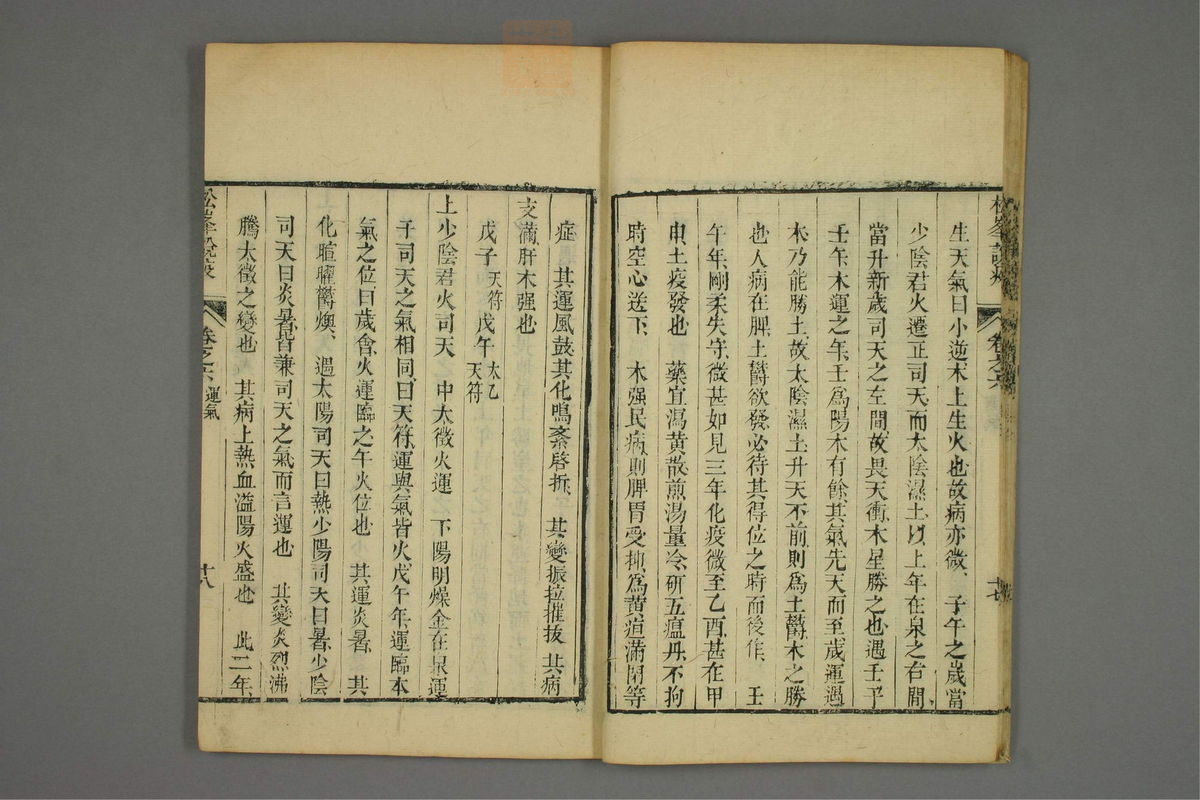 松峯說疫
卷之六
廿七
生天氣曰小逆木上生火也故病亦微　子午之歲當
少陰君火遷正司天而太陰濕土以上年在泉之右間
當升新歲司天之左間故畏天衝木星勝之也遇壬子
壬午木運之年壬爲陽木有餘其氣先天而至歲運過
木乃能勝土故太陰濕土升天不前則爲土鬱木之勝
也人病在脾土鬱欲發必待其得位之時而後作　壬
午年剛柔失守微甚如見三年化疫微至乙酉甚在甲
申土疫發也　藥宜瀉黃散煎湯量冷研五瘟丹不拘
時空心送下　木强民病則脾胃受抑爲黃疸滿閉等
症　其運風鼓其化鳴紊啓拆　其變振拉摧拔　其病
支滿肝木强也
戊子天符戊午太乙天符
上少陰君火司天　中太徵火運　下陽明燥金在泉運
子司天之氣相同曰天符運與氣皆火戊午年運臨本
氣之位曰歲會火運臨之午火位也　其運炎暑　其
化暄曜鬱燠　遇太陽司天曰熱少陽司天曰暑少陰
司天曰炎暑皆兼司天之氣而言運也　其變炎烈沸
騰太徵之變也　其病上熱血溢陽火盛也　此二年
松峯說疫
卷之六運氣
廿八